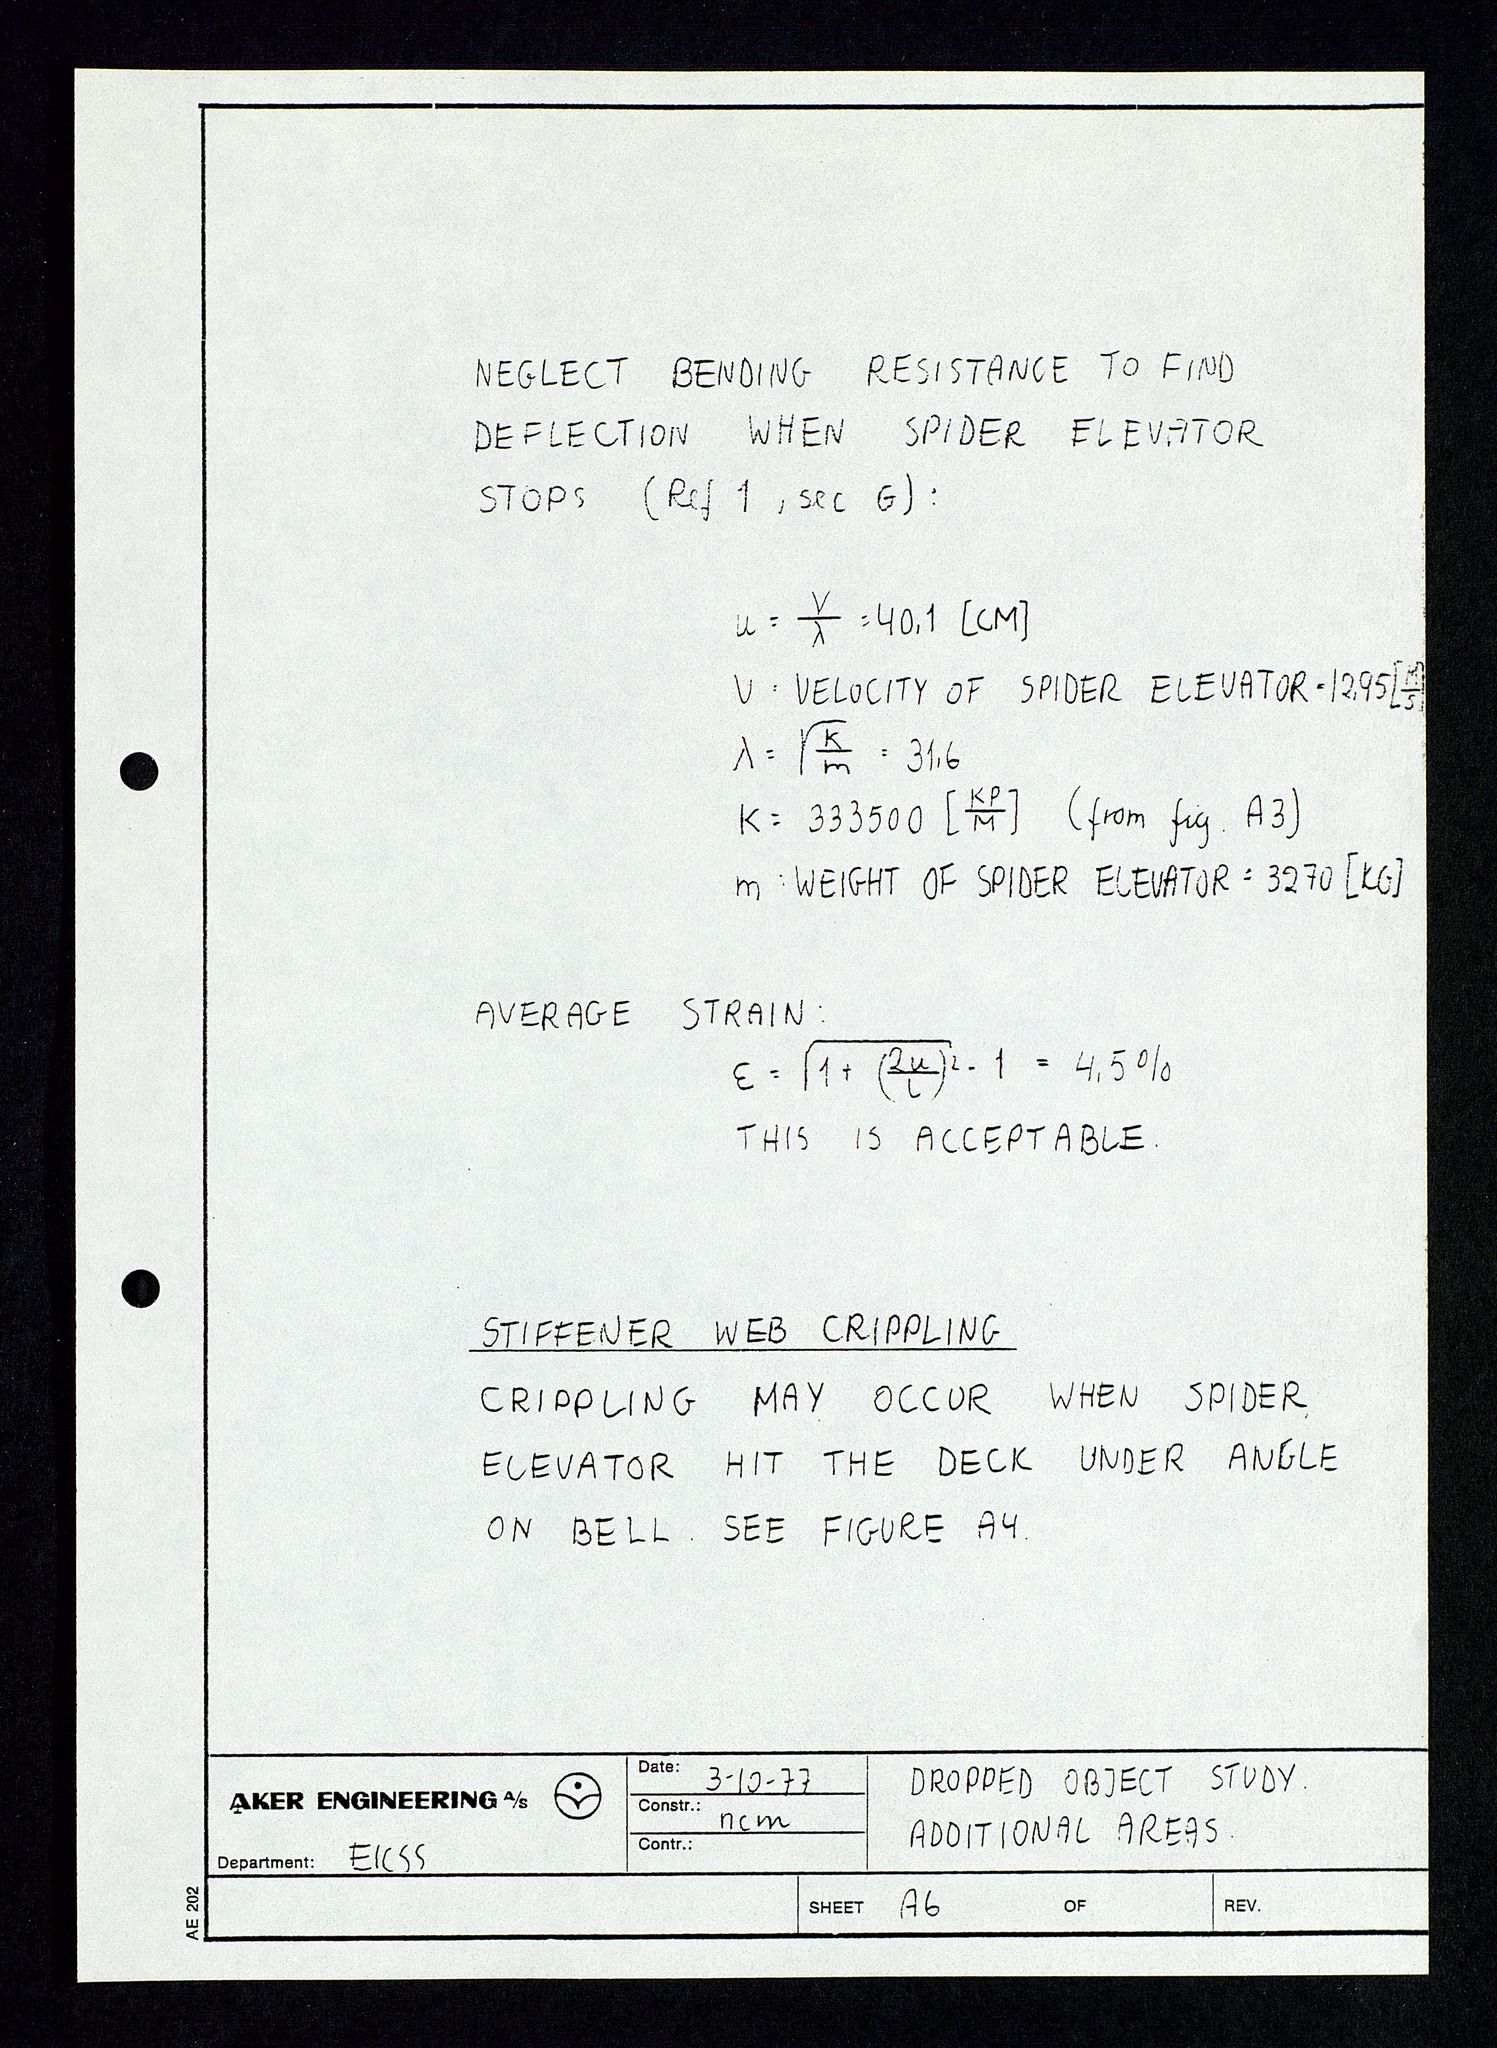 NEGLECT BENDING RESISTANCE TO FIND
DEFLECTION WHEN SPIDER ELEVATOR
STOPS (Ref 1, sec G):
u = V/λ = 40,1 [CM]
V = VELOCITY OF SPIDER ELEVATOR = 12,95 [M/S]
λ = √(K/m) = 31,6
K = 333500 [KP/M] (from fig. A3)
m : WEIGHT OF SPIDER ELEVATOR = 3270 [KG]
AVERAGE STRAIN:
ε = √(1 + (2u/L)²) - 1 = 4,5%
THIS IS ACCEPTABLE.
STIFFENER WEB CRIPPLING
CRIPPLING MAY OCCUR WHEN SPIDER
ELEVATOR HIT THE DECK UNDER ANGLE
ON BELL. SEE FIGURE A4.
AKER ENGINEERING A/S
Department:
Date: 3-10-77
Constr.: ncm
Contr.:
DROPPED OBJECT STUDY.
ADDITIONAL AREAS.
SHEET A6 OF
REV.
AE 202